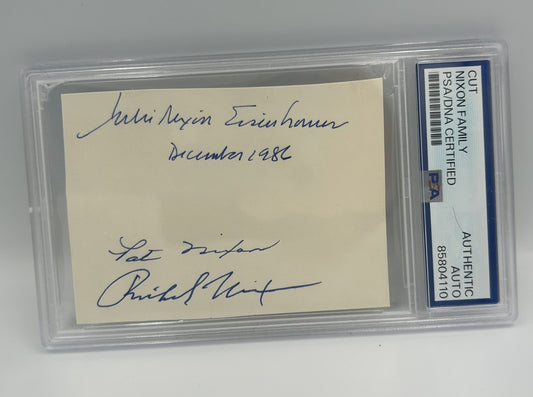 Julie Nixon Eisenhower
December 1986
Pat Nixon
Richard Nixon
CUT
NIXON FAMILY
PSA/DNA CERTIFIED
PSA
AUTHENTIC
AUTO
85804110